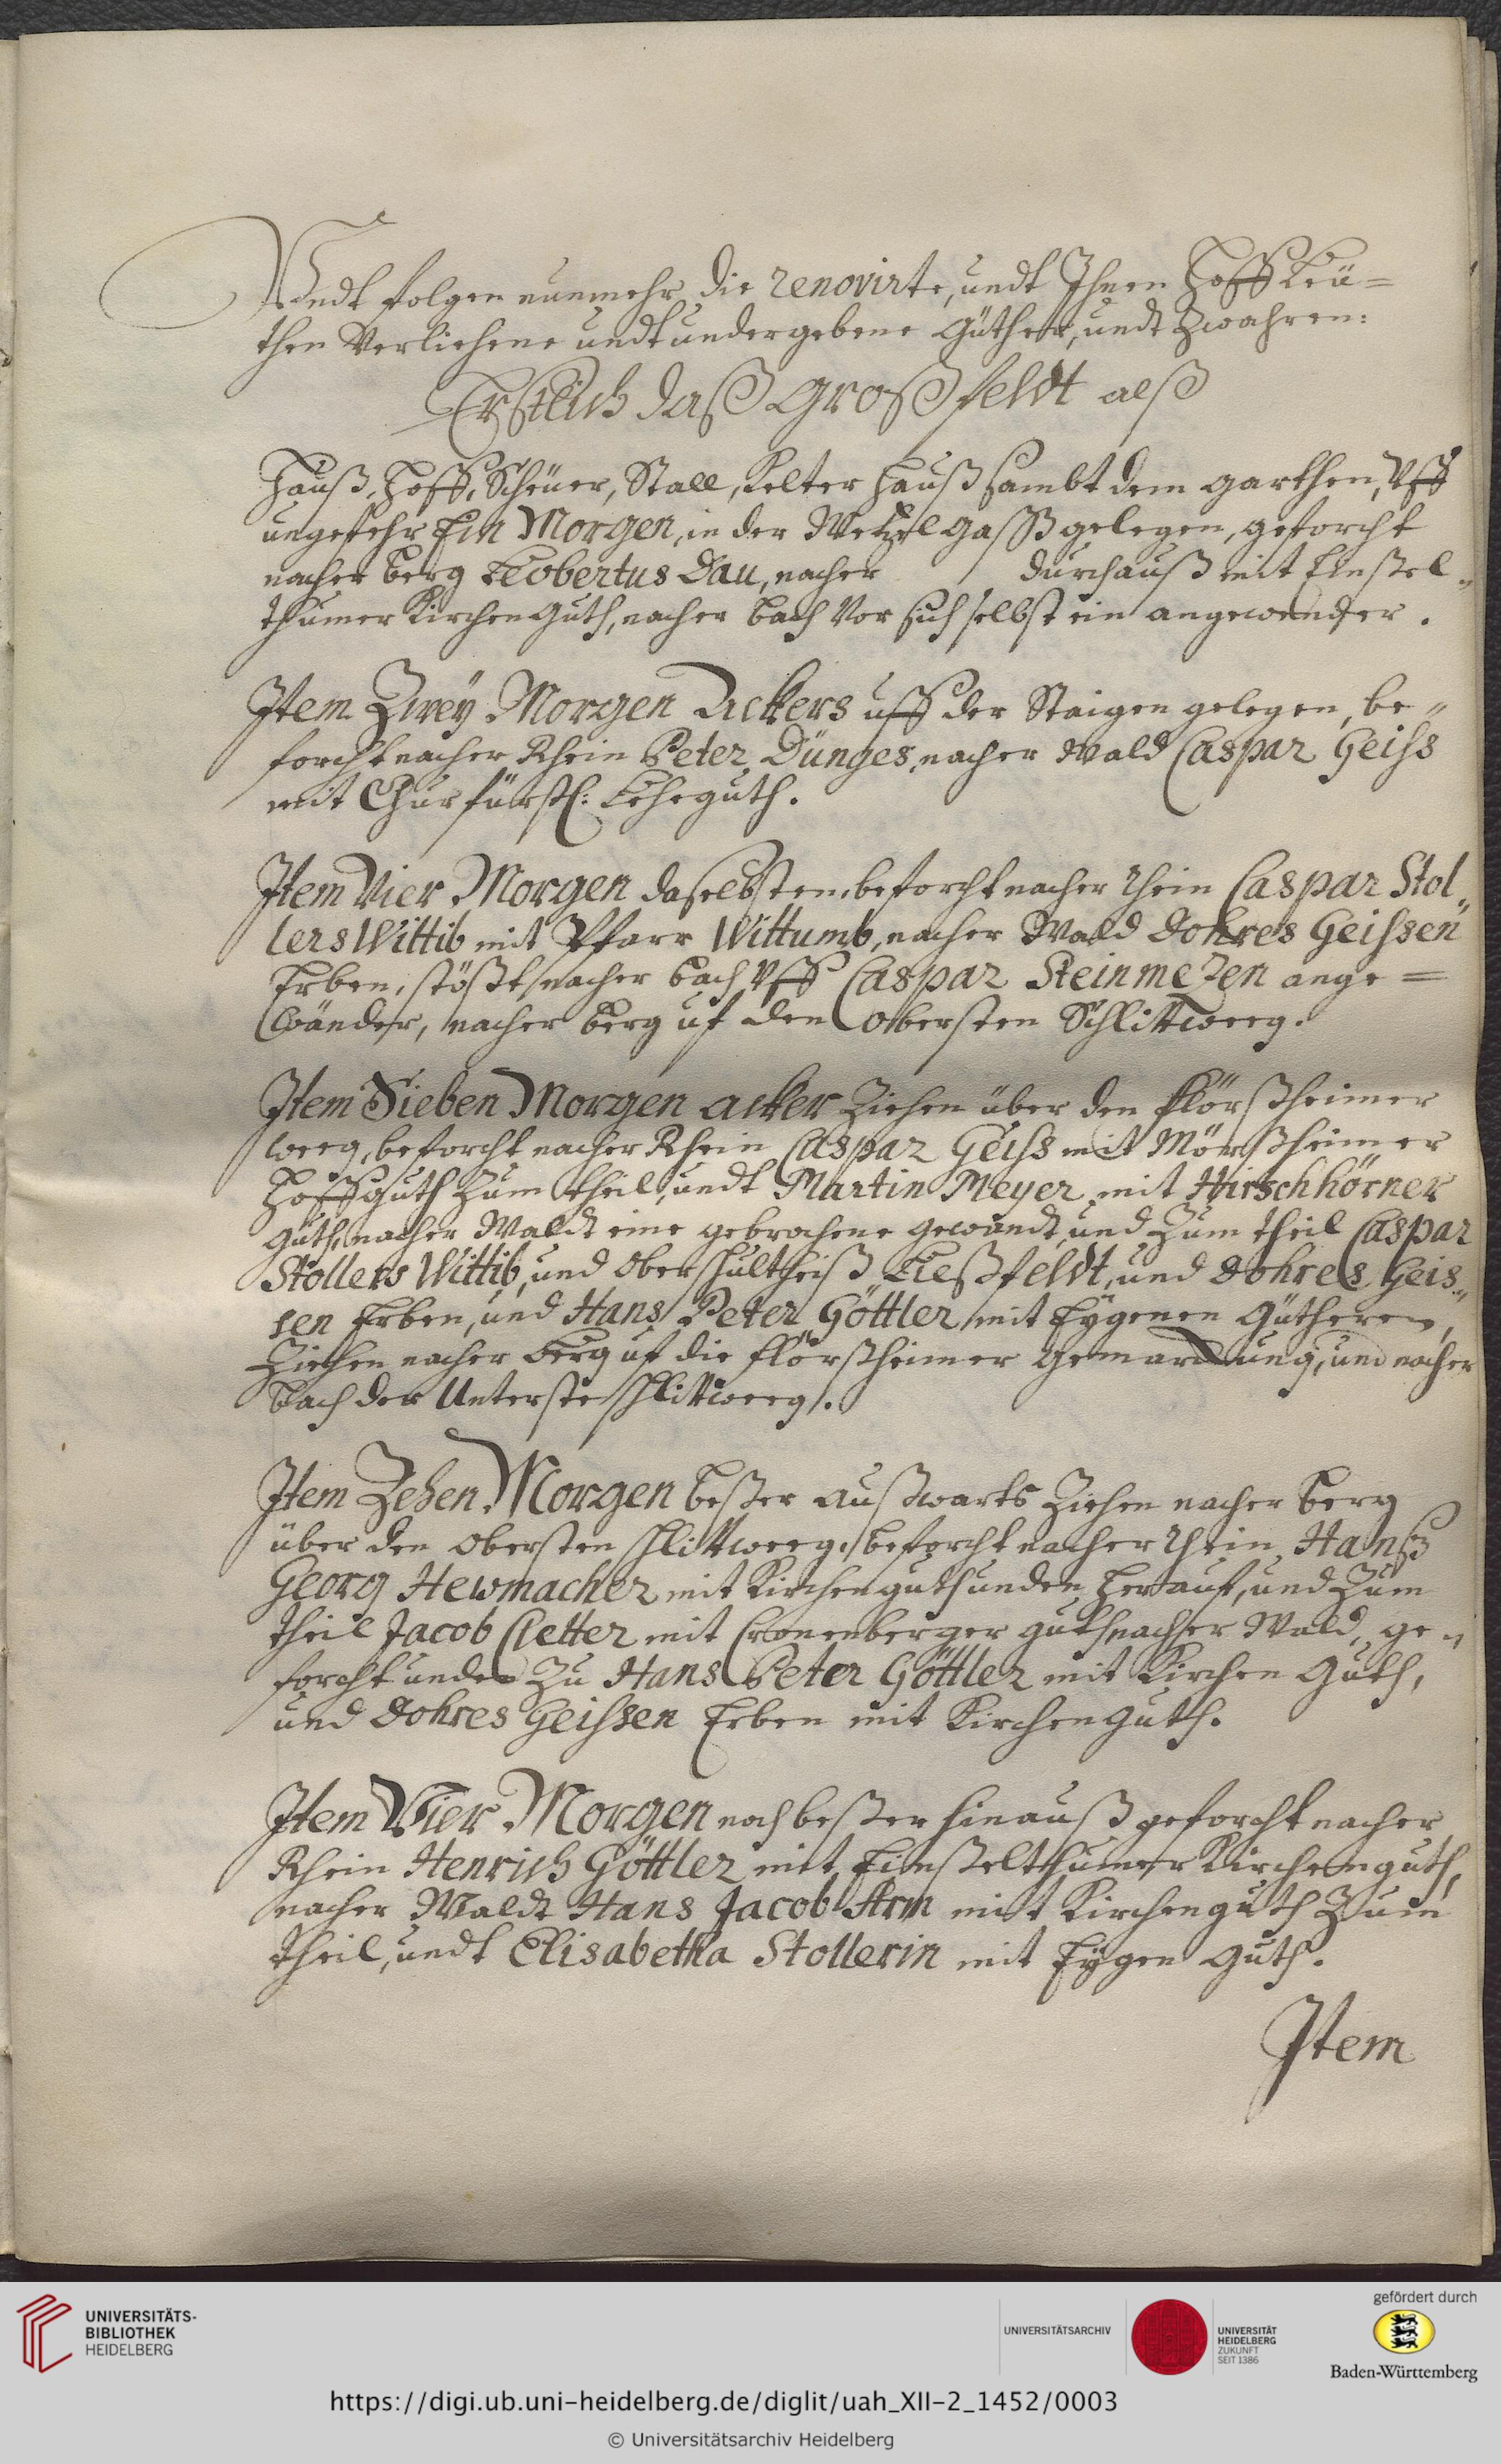 Undt folgen nunmehr die renovirte, undt Ihnen Hoff Leü=
then Verliehene undt undergebene Güther, undt Zwahren:
Erstlich daß Großfeldt alß
Hauß, Hoff, Scheüer, Stall, Kelterhauß sambt dem garthen, Vff
ungefehr Ein Morgen, in der Wetzelgaß gelegen, geforcht
nacher berg Robertus Dau, nacher durchauß mit Einßel„
thumer Kirchen Guth, nacher bach Vor sich selbst ein angewender.
Item Zwey Morgen Ackers uff der Staigen gelegen, be„
forcht nacher Rhein Peter Dünges, nacher Wald Caspar Geiss
mit Churfürstl: Lehnguth.
Item Vier Morgen daselbsten, beforcht nacher rhein Caspar Stol„
lers Wittib mit Pfarr Wittumb, nacher Wald Dohres Geissen
Erben, stößt nacher bach Vff Caspar Steinmezen ange=
wänder, nacher berg uf den obersten Schlittweeg.
Item Sieben Morgen acker Ziehen über den flörßheimer
weeg, beforcht nacher Rhein Caspar Geiss mit Mörßheimer
Hoffguth Zum theil, undt Martin Meyer mit Hirschhörner
guth, nacher Waldt eine gebrochene gewandt, und Zum theil Caspar
Stollers Wittib, und Oberschultheiß Ließfeldt, und Dohres Geis„
sen Erben, und Hans Peter Göttler mit Eygenen Gütheren,
Ziehen nacher berg uf die flörßheimer Gemarckung, und nacher
bach der Unterste schlittweeg.
Item Zehen Morgen beßer außwarts Ziehen nacher berg
über den obersten schlittweeg, beforcht nacher rhein Hanß
Georg Hewmacher mit Kirchenguth unden herauf, und Zum
theil Jacob Cletter mit Cronenberger guth nacher Wald, ge„
forcht unden Zu Hans Peter Göttler mit Kirchen Guth,
und Dohres Geissen Erben mit Kirchenguth.
Item Vier Morgen noch beßer hinauß geforcht nacher
Rhein Henrich Göttler mit Einßelthumer Kirchenguth,
nacher Waldt Hans Jacob Arm mit Kirchenguth Zum
theil, undt Elisabetha Stollerin mit Eygen Guth.
Item
UNIVERSITÄTS-
BIBLIOTHEK
HEIDELBERG
UNIVERSITÄTSARCHIV
UNIVERSITÄT
HEIDELBERG
ZUKUNFT
SEIT 1386
gefördert durch
Baden-Württemberg
https://digi.ub.uni-heidelberg.de/diglit/uah_XII-2_1452/0003
© Universitätsarchiv Heidelberg